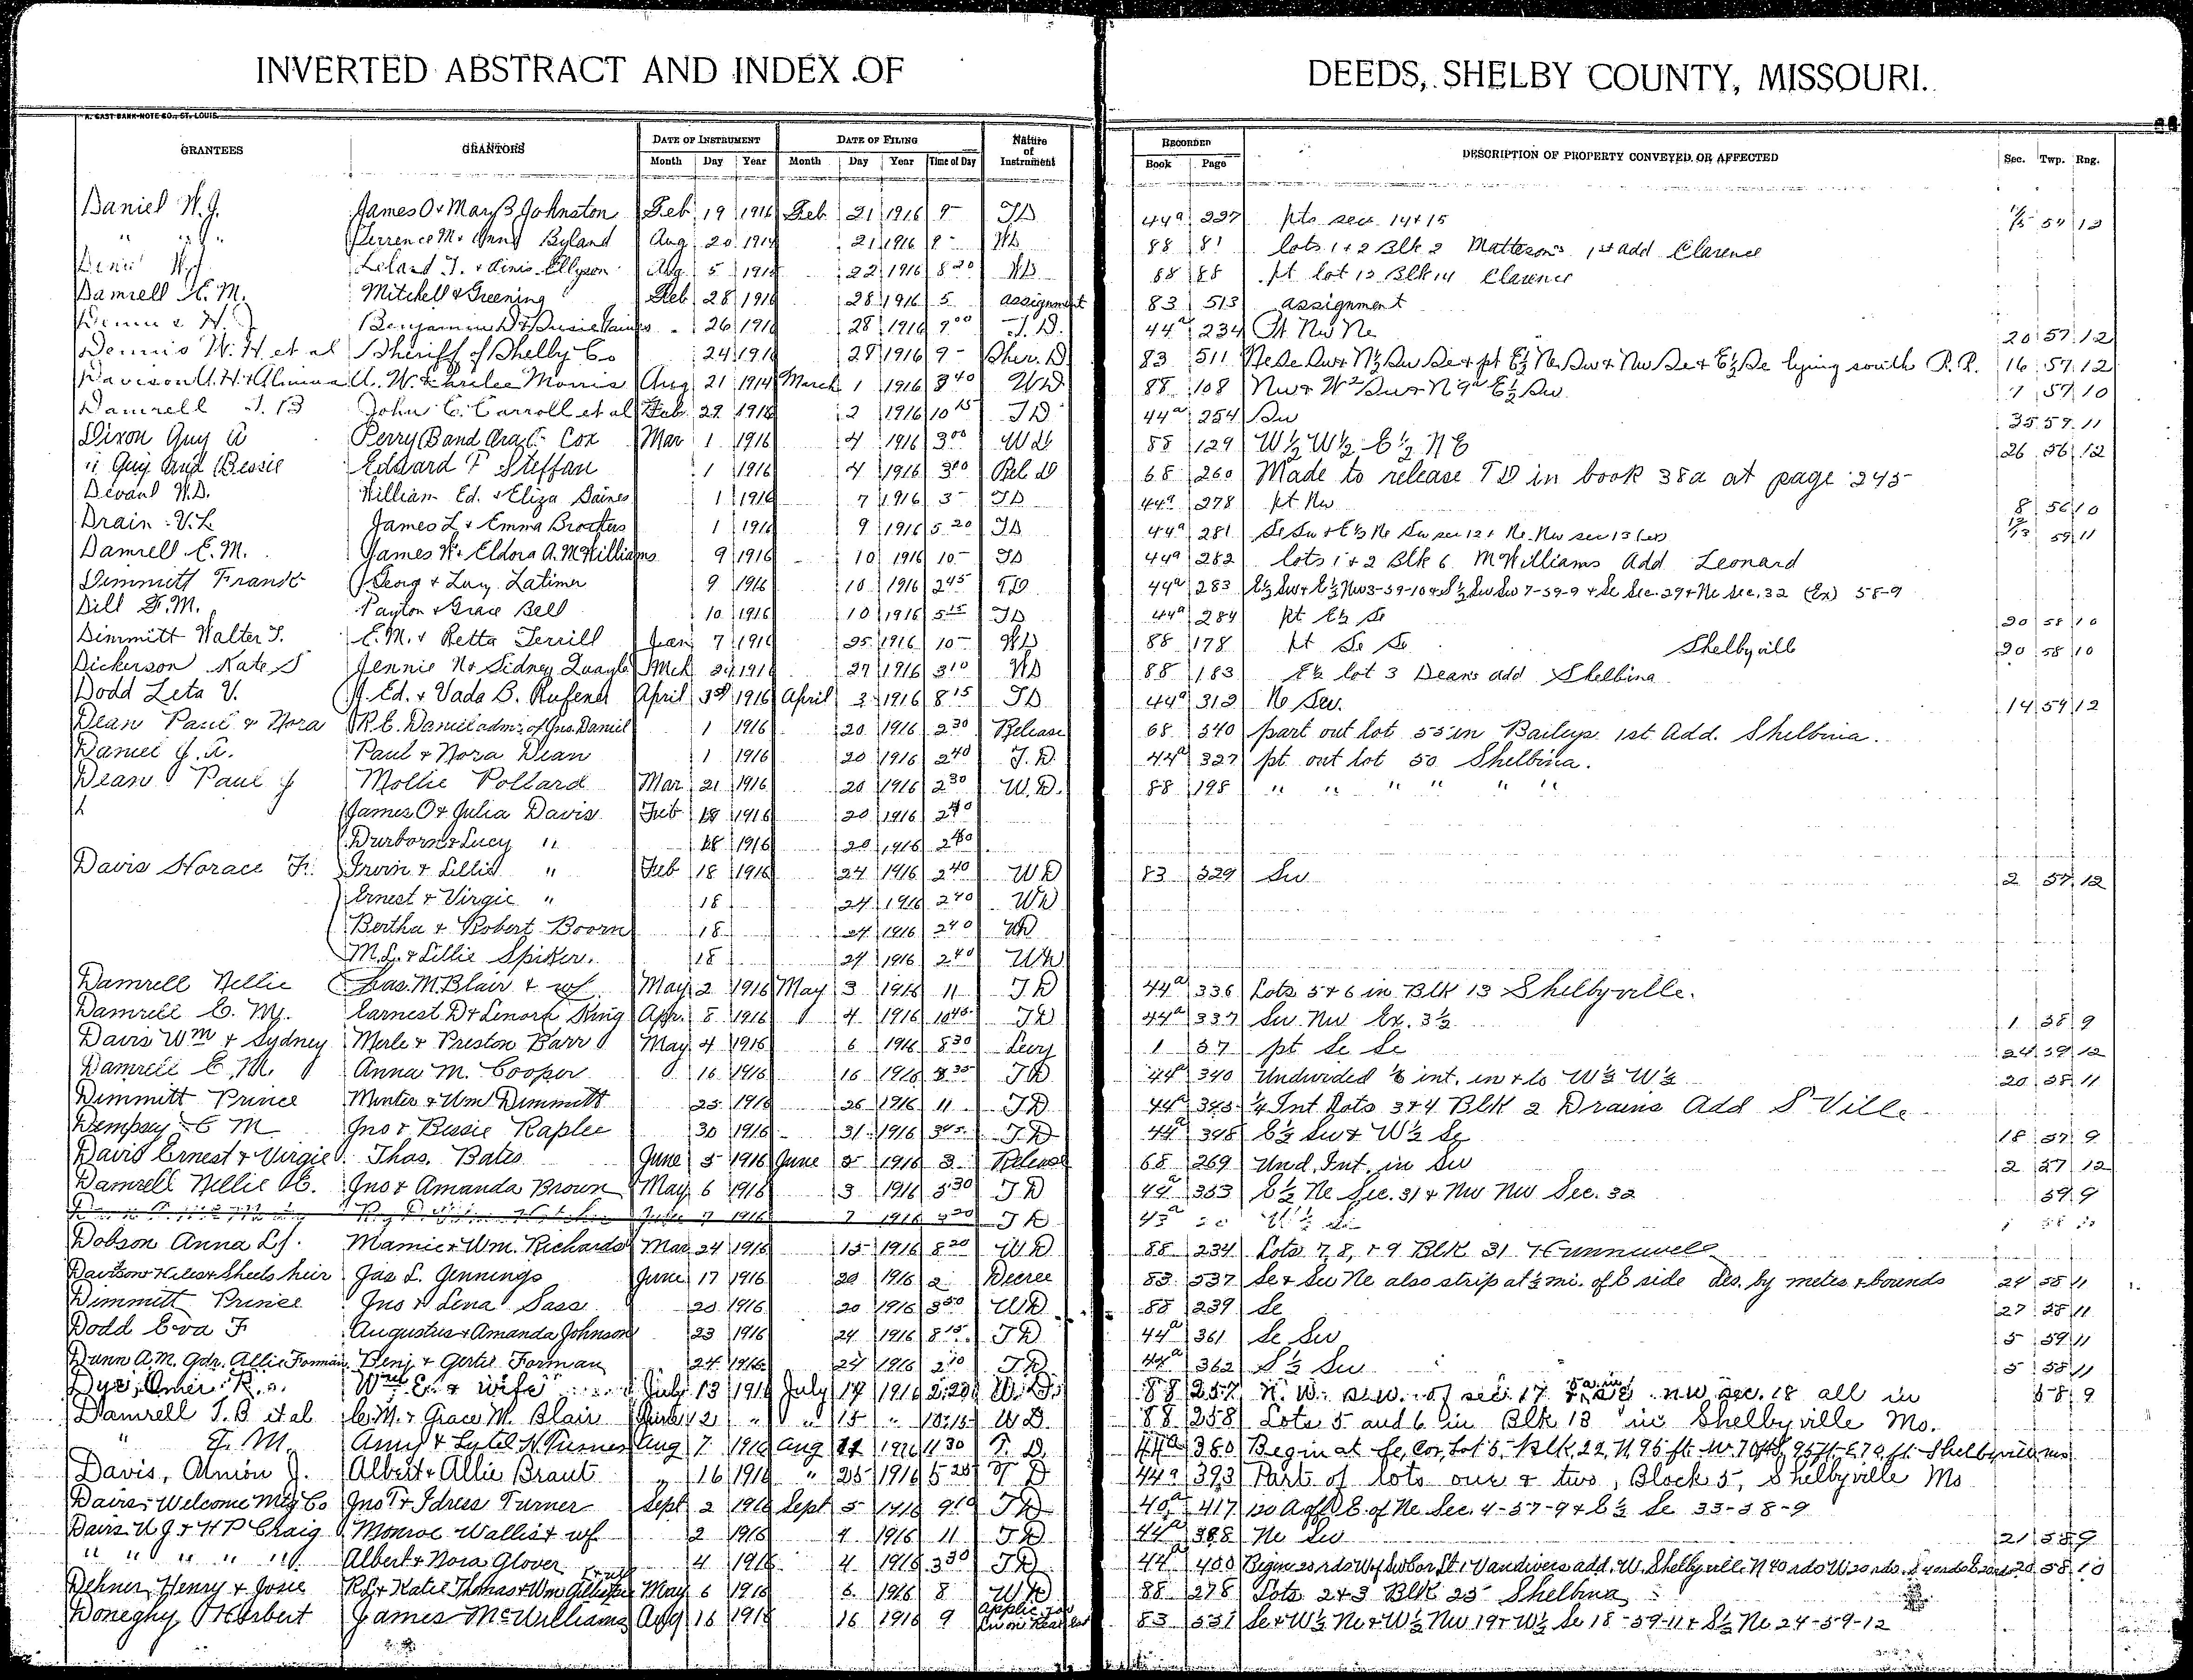 INVERTED ABSTRACT AND INDEX OF DEEDS, SHELBY COUNTY, MISSOURI.
A. GAST BANK-NOTE CO., ST. LOUIS.
GRANTEES GRANTORS DATE OF INSTRUMENT DATE OF FILING Nature of Instrument RECORDED DESCRIPTION OF PROPERTY CONVEYED OR AFFECTED Sec. Twp. Rng.
Month Day Year Month Day Year Time of Day Book Page
Daniel W.J. James O & Mary B Johnston Feb 19 1916 Feb 21 1916 9- TD 44a 227 pts sec 14 & 15 54 12
" " Terrence M & Anna Byland Aug 20 1914 21 1916 9- WD 88 81 lots 1 + 2 Blk 2 Matteson's 1st add Clarence
Leland T. & Ellyson Aug 5 1915 22 1916 8 20 WD 88 88 pt lot 12 Blk 14 Clarence
Damrell E.M. Mitchell & Greening Feb 28 1916 28 1916 5 assignment 83 513 assignment
Benjamin D & Susie Gaines " 26 1916 28 1916 9 00 T.D. 44a 234 Pt Nw Ne 20 57 12
Dennis W.H. et al Sheriff of Shelby Co 24 1916 28 1916 9- Sher. D 83 511 Ne Se Sw & N½ Sw Se & pt E½ Ne Sw & Nw Se & E½ Se lying south R.R. 16 57 12
Davison U.H. & Almina U. W. & Morris Aug 21 1914 March 1 1916 8 40 WD 88 108 Nw & W½ Sw & E½ Sw 7 57 10
Damrell J. B John C. Carroll et al Feb. 29 1916 2 1916 10 15 TD 44a 254 Sw 35 59 11
Dixon Guy A Perry B and Ora C. Cox Mar 1 1916 4 1916 3 00 WD 88 129 W½ W½ E½ NE 26 56 12
" Guy and Bessie Edward F Steffan 1 1916 4 1916 3 00 Rel D 68 260 Made to release TD in book 38a at page 245
Devaul W.D. William Ed. & Eliza Gaines 1 1916 7 1916 3- TD 44a 278 pt Nw 8 56 10
Drain V.L. James L & Emma Brothers 1 1916 9 1916 5 20 TD 44a 281 Se Sw & E½ Ne Sw sec 12 & Ne Nw sec 13 (ex) 12/13 59 11
Damrell E.M. James W & Eldora A. McWilliams 9 1916 10 1916 10- TD 44a 282 lots 1 + 2 Blk 6 McWilliams Add Leonard
Dimmitt Frank Georg & Lucy Latimer 9 1916 10 1916 2 45 TD 44a 283 E½ Sw & E½ Nw 3-59-10 & S½ Sw Sw 7-59-9 & Se Sec. 29 & Ne Sec. 32 (Ex) 58-9
Dill F.M. Payton & Grace Bell 10 1916 10 1916 5 15 TD 44a 284 pt E½ Se 20 58 10
Dimmitt Walter T. E.M. & Retta Terrill Jan 7 1916 25 1916 10- WD 88 178 pt Se Se Shelbyville 20 58 10
Dickerson Kate S Jennie N & Sidney Quayle Mch 24 1916 27 1916 3 10 WD 88 183 E½ lot 3 Deans add Shelbina
Dodd Leta V. J. Ed. & Vada B. Rufener April 3rd 1916 April 3 1916 8 15 TD 44a 312 Ne Sw 14 59 12
Dean Paul & Nora R.E. Daniel adm'r of Jno. Daniel 1 1916 20 1916 2 30 Release 68 340 part out lot 55 in Baileys 1st Add. Shelbina.
Daniel J. A. Paul & Nora Dean 1 1916 20 1916 2 40 T.D. 44a 327 pt out lot 50 Shelbina.
Dean Paul J Mollie Pollard Mar 21 1916 20 1916 2 30 W.D. 88 198 " " " " " "
James O & Julia Davis Feb 18 1916 20 1916 2 40
Durborn & Lucy " 18 1916 20 1916 2 40
Davis Horace F. Irvin & Lillie " Feb 18 1916 24 1916 2 40 WD 83 529 Sw 2 57 12
Ernest & Virgie " 18 24 1916 2 40 WD
Bertha & Robert Boorn 18 24 1916 2 40 WD
M.L. & Lillie Spiker. 18 24 1916 2 40 WD
Damrell Nellie Jas. M. Blair & wf May 2 1916 May 3 1916 11 TD 44a 336 Lots 5 + 6 in Blk 13 Shelbyville.
Damrell E. M. Earnest D & Lenora King Apr. 8 1916 4 1916 10 45 TD 44a 337 Sw Nw Ex. 3½ 1 58 9
Davis Wm & Sydney Merle & Preston Barr May 4 1916 6 1916 8 30 Levy 1 57 pt Se Se 24 59 12
Damrell E.M. Anna M. Cooper 16 1916 16 1916 TD 44a 340 Undivided int. in & to W½ W½ 20 58 11
Dimmitt Prince Minter & Wm Dimmitt 25 1916 26 1916 11 TD 44a 345 ¼ Int Lots 3 & 4 Blk 2 Drains Add S'Ville
Dempsey C M Jno & Bessie Raplee 30 1916 31 1916 3 45 TD 44a 348 E½ Sw & W½ Se 18 57 9
Davis Ernest & Virgie Thos. Bates June 5 1916 June 5 1916 3 Release 68 269 Und. Int. in Sw 2 57 12
Damrell Nellie Jno & Amanda Brown May 6 1916 3 1916 5 30 TD 44a 353 E½ Ne Sec. 31 & Nw Nw Sec. 32 59 9
7 1916 7 1916 TD
Dobson Anna L. Mamie & Wm. Richards Mar 24 1916 15 1916 8 20 WD 88 234 Lots 7, 8, & 9 Blk 31 Hunnewell
Davison Hiles & Sheets heir Jas L. Jennings June 17 1916 20 1916 2 Decree 83 537 Se & Sw Ne also strip at ½ mi. of E side des. by metes & bounds 24 58 11
Dimmitt Prince Jno & Lena Sass 20 1916 20 1916 3 50 WD 88 239 Se 27 58 11
Dodd Eva F Augustus & Amanda Johnson 23 1916 24 1916 8 15 TD 44a 361 Se Sw 5 59 11
Dunn A.M. Gdn. Allie Forman Benj & Gertie Forman 24 1916 24 1916 2 10 TD 44a 362 S½ Sw 5 58 11
Dye, Omer R. Wm E. & wife July 13 1916 July 14 1916 2:20 W.D. 88 257 N. W. S.W. of sec. 17 nw sec. 18 all in 58 9
Damrell T.B et al C.M. & Grace M. Blair 2 " " 15 " WD 88 258 Lots 5 and 6 in Blk 13 in Shelbyville Mo.
" E. M. Amy & Lytel N. Turner Aug 7 1916 Aug 11 1916 11 30 T. D. 44a 380 Begin at Se, Cor, Lot 5, Blk, 22, N 95 ft W. 70 ft S 95 ft E 70 ft Shelbyville mo
Davis, Amion J. Albert & Allie Braut " 16 1916 " 25 1916 5 25 T D 44a 393 Part of lots one & two, Block 5, Shelbyville Mo
Davis, Welcome Mfg Co Jno T & Idress Turner Sept 2 1916 Sept 5 1916 9 10 TD 40a 417 120 A off E of Ne Sec. 4-57-9 & E½ Se 33-58-9
Davis U J & H P Chaig Monroe Wallis & wf 2 1916 4 1916 11 TD 44a 398 Ne Sw 21 58 9
" " " " " Albert & Nora Glover 4 1916 4 1916 3 30 TD 44a 400 Vandivers add. W. Shelbyville N 40 rds W 20 rds 20 58 10
Dehner Henry & Josie R.L. & Katie Thomas & Wm Gillispie & wf May 6 1916 6 1916 8 WD 88 278 Lots 2 & 3 Blk 25 Shelbina
Doneghy Herbert James McWilliams Aug 16 1916 16 1916 9 83 551 Se & W½ Ne & W½ Nw 19 & W½ Se 18-59-11 & S½ Ne 24-59-12